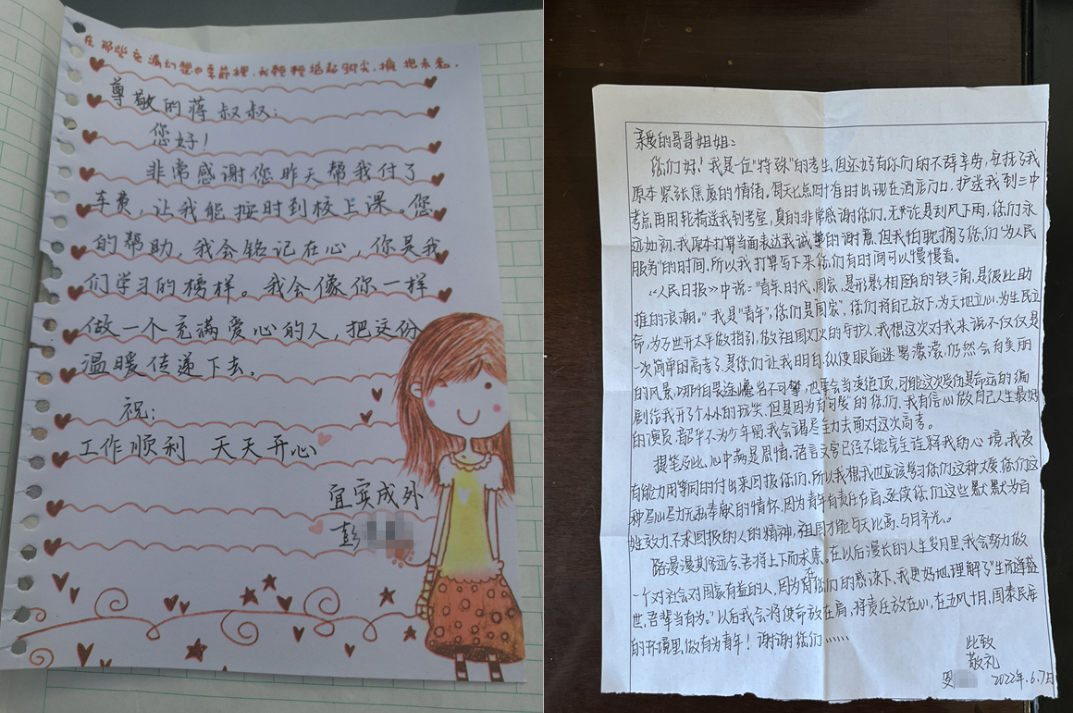 在那些充满幻想的季节裡,我轻轻掂起脚尖,拥抱未来.
尊敬的蒋叔叔:
您好!
非常感谢您昨天帮我付了
车费,让我能按时到校上课。您
的帮助,我会铭记在心,你是我
们学习的榜样。我会像你一样
做一个充满爱心的人,把这份
温暖传递下去。
祝:
工作顺利 天天开心
宜宾成外
彭
亲爱的哥哥姐姐:
你们好!我是一位"特殊"的考生,但还好有你们的不辞辛劳,安抚了我
原本紧张焦虑的情绪。每天七点四十有时出现在酒店门口,护送我到三中
考点再用轮椅送我到考室,真的非常感谢你们,无论是刮风下雨,你们永
远如初,我原本打算当面表达我诚挚的谢意,但我怕耽搁了你们"为人民
服务"的时间,所以我打算写下来你们有时间可以慢慢看。
《人民日报》中说:"青年、时代、国家,是形影相随的铁三角,是彼此助
推的浪潮。"我是"青年",你们是"国家",你们将自己放下,为天地立心,为生民立
命,为万世开太平做指引,做祖国灯火的守护人,我想这次对我来说不仅仅是
一次简单的高考了,是你们让我明白,纵使眼前迷雾濛濛,仍然会有美丽
的风景,哪怕晨途 名不可攀,也要会当凌绝顶,可能这次受伤是命运的编
剧给我开了个小小的玩笑,但是因为有可爱的你们,我有信心做自己人生最好
的演员,韶华不为少年留,我会竭尽全力去面对这次高考。
提笔至此,心中满是恩情,语言文字已经不能完全诠释我的心境,我没
有能力用等同的付出来回报你们,所以我想我也应该学习你们这种大爱,你们这
种尽心尽力无私奉献的情怀,因为青年有责任在肩,延续你们这些默默为百
姓效力,不求回报的人的精神,祖国才能与天比高,与月齐光。
路漫漫其修远兮,吾将上下而求索。在以后漫长的人生岁月里,我会努力做
一个对社会对国家有益的人,因为在你们的感染下,我更好地理解了"生而逢盛
世,吾辈当有为。"以后我会将使命放在肩,将责任放在心,在五风十雨,国泰民安
的环境里,做有为青年!谢谢你们······
此致
敬礼
2022年.6.7日